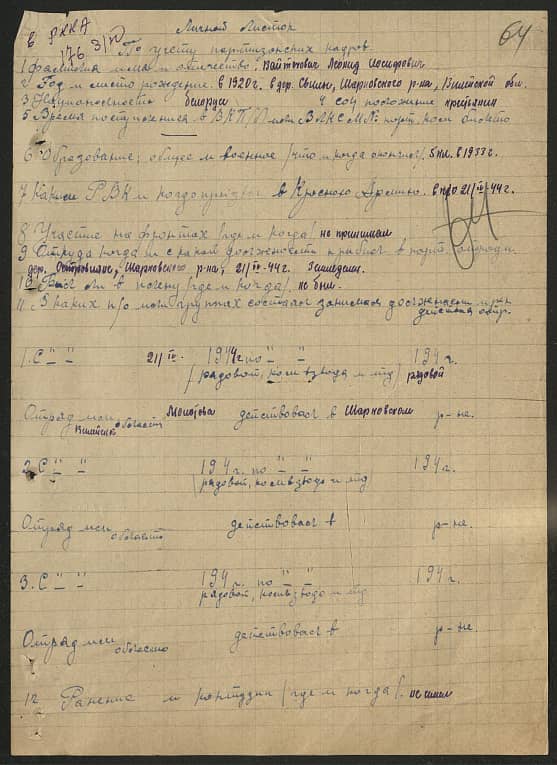 в РККА
64
Личной Листок
176 3/IV
По учету партизанских кадров.
1 фамилия имя и отчество: Вайтович Леонид Иосифович
2 Год и место рождение. в 1920 г. в дер. Свилы, Шарковского р-на, Вилейской обл.
3 Национальность белорус 4 соц положение крестьянин
5 Время поступления в ВКП/б/ или ВЛКСМ №
6 Образование; общее и военное /что и когда окончил/. 5 кл. в 1933 г.
7 Каким РВК и когда призван в Красную Армию. в п/о 21/IV-44 г.
64
8 Участие на фронтах /где и когда/ не принимал
9 Откуда когда и с какой должности прибыл в парт.
дер. Шарковского р-на, 21/IV-44 г. Земледел.
10 Был ли в плену /где и когда/. не был.
11 В каких п/о или группах состоял занимал должность и
1. С " " 21/IV. 1944 г по " " 194 г.
/рядовой, ком взвода и тд/ рядовой
Отряд им. Молотова действовал в Шарковском р-не.
Вилейской области
2. С " " 194 г. по " " 194 г.
/рядовой, ком взвода и тд
Отряд им действовал в р-не.
области
3. С " " 194 г. по " " 194 г.
рядовой, ком взвода и тд
Отряд им действовал в р-не
области
12 Ранение и контузии /где и когда/. не имел